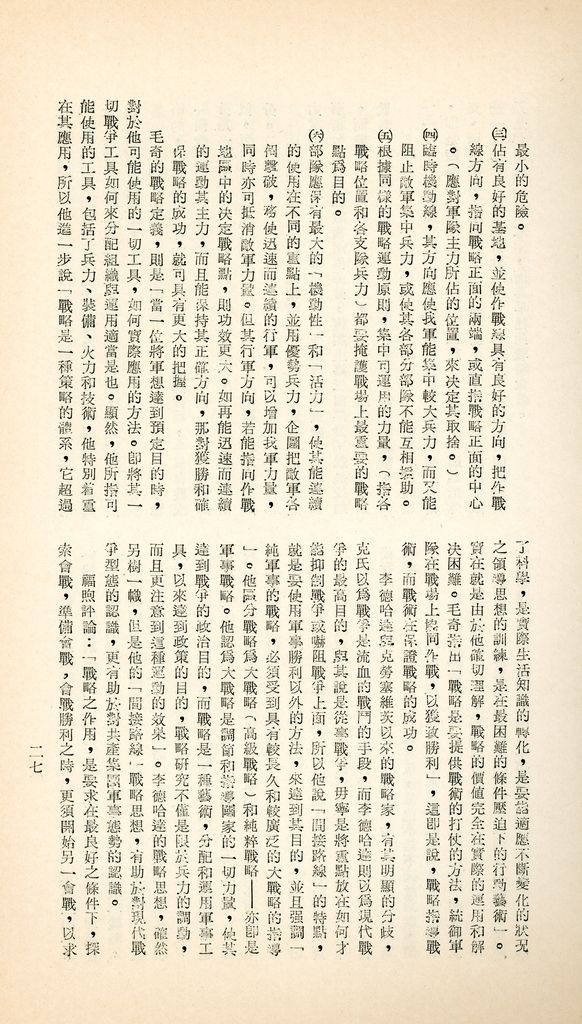 最小的危險。
㈢佔有良好的基地，並使作戰線具有良好的方向，把作戰
線方向，指向戰略正面的兩端，或直指戰略正面的中心
。（應對軍隊主力所佔的位置，來決定其取捨。）
㈣臨時機動線，其方向應使我軍能集中較大兵力，而又能
阻止敵軍集中兵力，或使其各部分部隊不能互相援助。
㈤根據同樣的戰略運動原則，集中可運用的力量，（指各
戰略位置和各支隊兵力）都要掩護戰場上最重要的戰略
點爲目的。
㈥部隊應保有最大的「機動性」和「活力」，使其能連續
的使用在不同的重點上，並用優勢兵力，企圖把敵軍各
個擊破，務使迅速而連續的行軍，可以增加我軍力量，
同時亦可抵消敵軍力量。但其行軍方向，若能指向作戰
地區中的決定戰略點，則功效更大。如再能迅速而連續
的運動其主力，而且能保持其正確方向，那對獲勝和確
保戰略的成功，就可具有更大的把握。
毛奇的戰略定義，則是「當一位將軍想達到預定目的時，
對於他可能使用的一切工具，如何實際應用的方法。卽將其一
切戰爭工具如何來分配組織與運用適當是也。顯然，他所指可
能使用的工具，包括了兵力、裝備、火力和技術，他特別着重
在其應用，所以他進一步說「戰略是一種策略的體系，它超過
了科學，是實際生活知識的轉化，是要能適應不斷變化的狀況
之領導思想的訓練，是在最困難的條件壓迫下的行動藝術」。
實在就是由於他確切理解，戰略的價值完全在實際的運用和解
決困難。毛奇指出「戰略是要提供戰術的打仗的方法，統御軍
隊在戰場上協同作戰，以獲致勝利」，這卽是說，戰略指導戰
術，而戰術在保證戰略的成功。
李德哈達與克勞塞維茨以來的戰略家，有其明顯的分歧，
克氏以爲戰爭是流血的戰鬥的手段，而李德哈達則以爲現代戰
爭的最高目的，與其說是從事戰爭，毋寧是將重點放在如何才
能抑制戰爭或嚇阻戰爭上面，所以他說「間接路線」的特點，
就是要使用軍事勝利以外的方法，來達到其目的，並且强調「
純軍事的戰略，必須受到具有較長久和較廣泛的大戰略的指導
」。他區分戰略爲大戰略（高級戰略）和純粹戰略——亦卽是
軍事戰略。他認爲大戰略是調節和指導國家的一切力量，使其
達到戰爭的政治目的，而戰略是一種藝術，分配和運用軍事工
具，以來達到政策的目的，戰略研究不僅是限於兵力的調動，
而且更注意到這種運動的效果」。李德哈達的戰略思想，確然
另樹一幟，但是他的「間接路線」戰略思想，有助於對現代戰
爭型態的認識，更有助於對共產集團軍事態勢的認識。
福煦評論：「戰略之作用，是要求在最良好之條件下，探
索會戰，準備會戰，會戰勝利之時，更須開始另一會戰，以求
二七